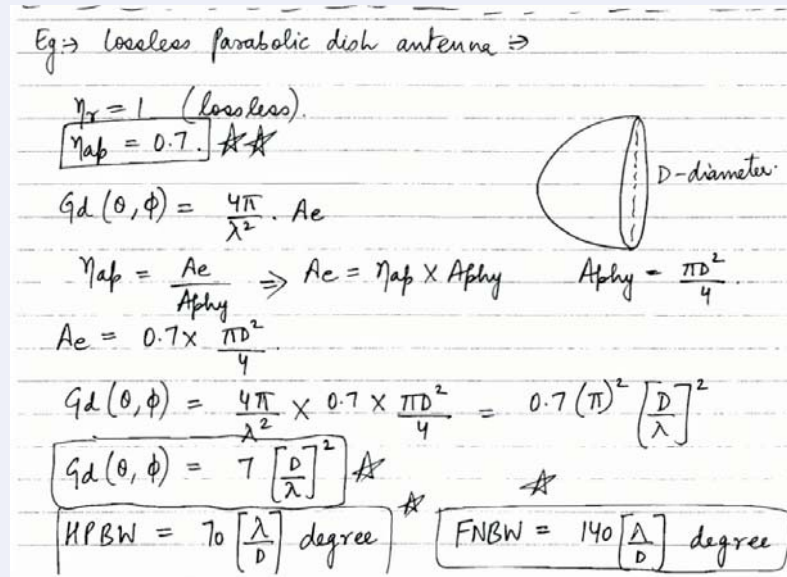 Eg:→ Lossless Parabolic dish antenna ⇒
ηr = 1 (lossless).
ηap = 0.7. ☆☆
D-diameter.
Gd (θ, ϕ) = 4π/λ² . Ae
ηap = Ae/Aphy ⇒ Ae = ηap × Aphy Aphy = πD²/4.
Ae = 0.7 × πD²/4
Gd (θ, ϕ) = 4π/λ² × 0.7 × πD²/4 = 0.7 (π)² [D/λ]²
Gd (θ, ϕ) = 7 [D/λ]² ☆
HPBW = 70 [λ/D] degree ☆ FNBW = 140 [λ/D] degree ☆